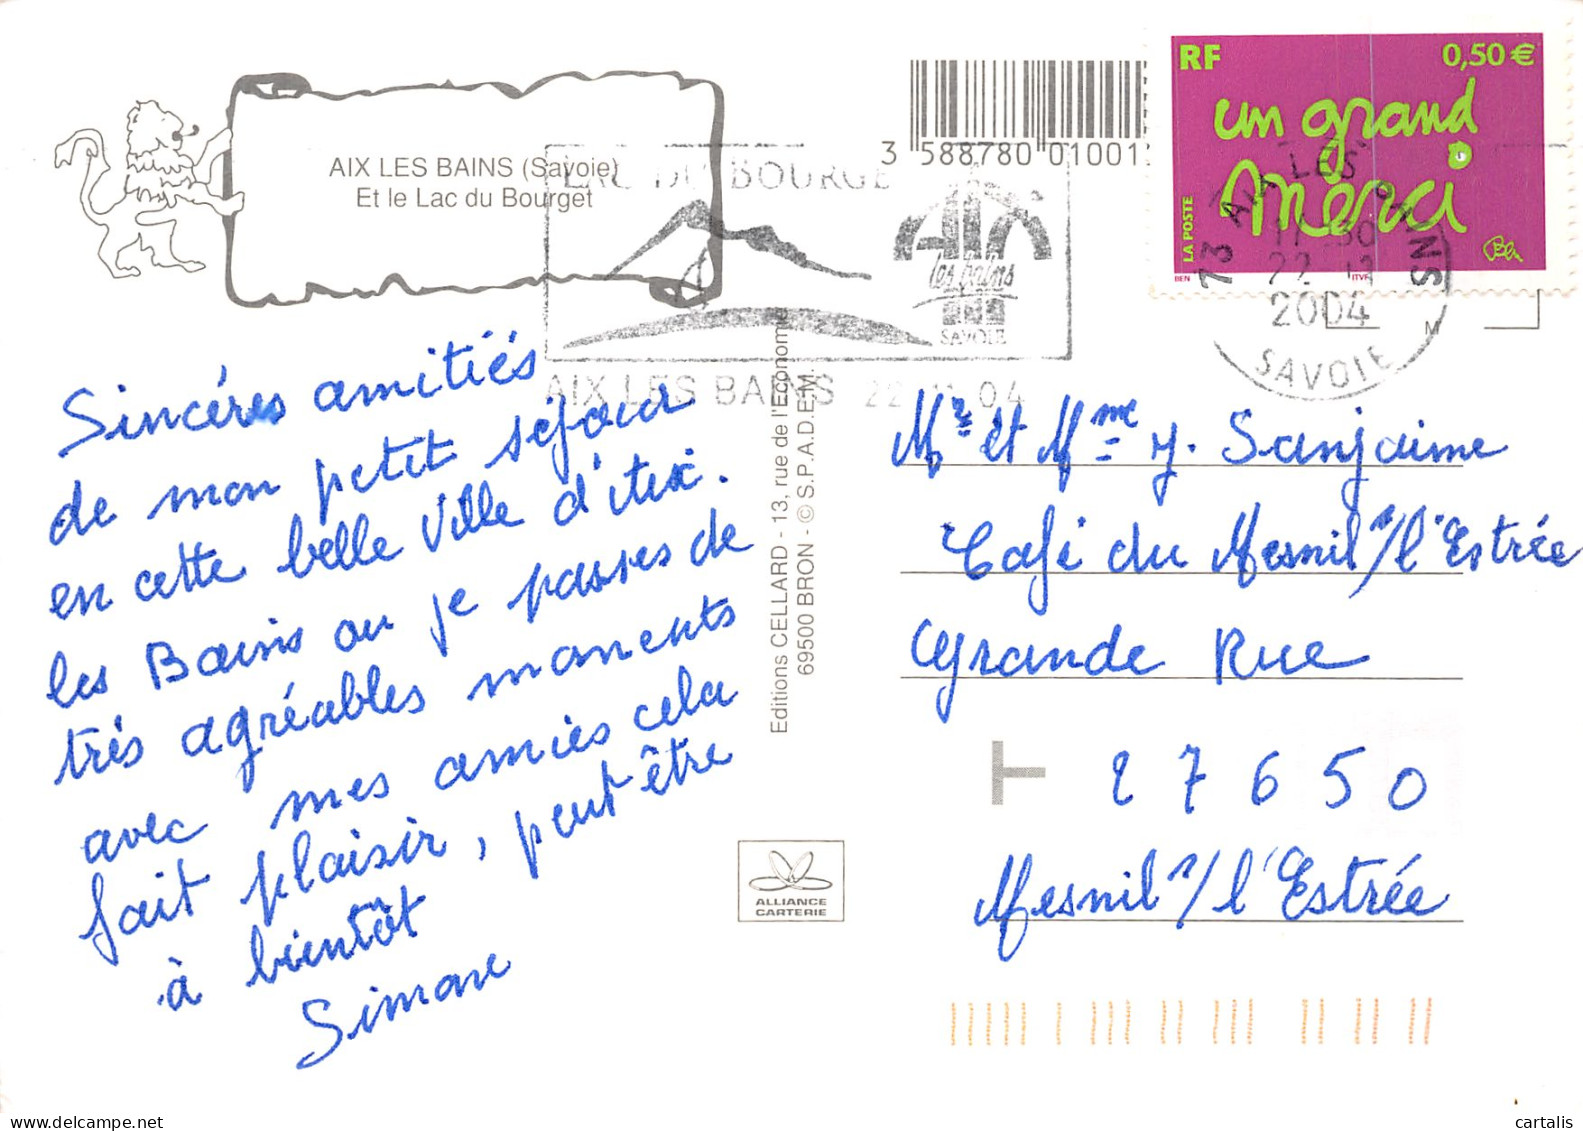 AIX LES BAINS (Savoie)
Et le Lac du Bourget
3 588780 01001
RF 0,50 €
un grand
Merci
LA POSTE
Ben
BEN ITVF
LAC DU BOURGET
AIX
les bains
SAVOIE
AIX LES BAINS 22 04
73 AIX LES BAINS
2004
SAVOIE
M
Sincéres amitiés
de mon petit séjour
en cette belle Ville d'Aix.
les Bains ou je passes de
très agréables moments
avec mes amies cela
fait plaisir, peut être
à bientôt
Simone
Editions CELLARD - 13, rue de l'Economie
69500 BRON - © S.P.A.D.E.M.
Mr et Mme J. Sanjaime
Café du Mesnil s/l'Estrée
Grande Rue
27650
Mesnil s/l'Estrée
ALLIANCE
CARTERIE
cartalis